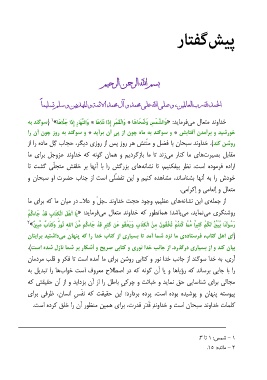 پیش‌گفتار
بسم الله الرحمن الرحیم
الحمد لله رب العالمین، و صلی الله علی محمد و آل محمد الائمة و المهدیین و سلم تسلیماً
خداوند متعال می‌فرماید: ﴿وَالشَّمْسِ وَضُحَاهَا * وَالْقَمَرِ إِذَا تَلَاهَا * وَالنَّهَارِ إِذَا جَلَّاهَا﴾¹ (سوگند به
خورشید و برآمدن آفتابش * و سوگند به ماه چون از پی آن برآید * و سوگند به روز چون آن را
روشن کند). خداوند سبحان با فضل و منتش هر روز پس از روزی دیگر، حجاب گل ماده را از
مقابل بصیرت‌های ما کنار می‌زند تا ما بازگردیم و همان گونه که خداوند عزوجل برای ما
اراده فرموده است، نظر بیفکنیم، تا نشانه‌های بزرگش را با آنها بر خلقش متجلی گشت تا
خودش را به آنها بشناساند، مشاهده کنیم و این تفضلی است از جناب حضرت او سبحان و
متعال و إمامی و إکرامی.
از جمله‌ی این نشانه‌های عظیم، وجود حجت خداوند ـجل و علاـ در میان ما که برای ما
روشنگری می‌نماید، می‌باشد؛ همانطور که خداوند متعال می‌فرماید: ﴿يَا أَهْلَ الْكِتَابِ قَدْ جَاءَكُمْ
رَسُولُنَا يُبَيِّنُ لَكُمْ كَثِيرًا مِمَّا كُنْتُمْ تُخْفُونَ مِنَ الْكِتَابِ وَيَعْفُو عَنْ كَثِيرٍ قَدْ جَاءَكُمْ مِنَ اللَّهِ نُورٌ وَكِتَابٌ مُبِينٌ﴾²
(ای اهل کتاب، فرستاده‌ی ما نزد شما آمد تا بسیاری از کتاب خدا را که پنهان می‌داشتید برایتان
بیان کند و از بسیاری درگذرد، از جانب خدا نوری و کتابی صریح و آشکار بر شما نازل شده است).
آری، به خدا سوگند از جانب خدا نور و کتابی روشن برای ما آمده است تا فکر و قلب مردمان
را با جایی برساند که رؤیاها و یا آن گونه که در اصطلاح معروف است خواب‌ها را تبدیل به
مجالی برای شناسایی حق نماید و خباثت و چرکی باطل را از آن بزداید و از آن حقیقتی که
پیوسته پنهان و پوشیده بوده است، پرده بردارد؛ این حقیقت که نفس انسان، ظرفی برای
کلمات خداوند سبحان است و خداوندِ قادرِ قدرت، برای همین منظور آن را خلق کرده است.
۱ - شمس: ۱ تا ۳.
۲ - مائده: ۱۵.